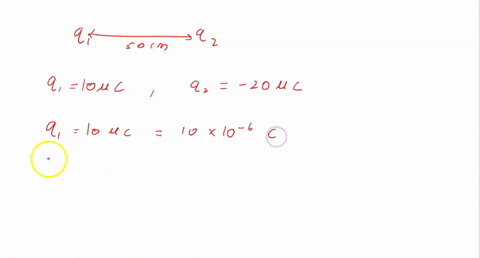 q₁ q₂
50cm
q₁ = 10 μC , q₂ = -20 μC
q₁ = 10 μC = 10 × 10⁻⁶ C